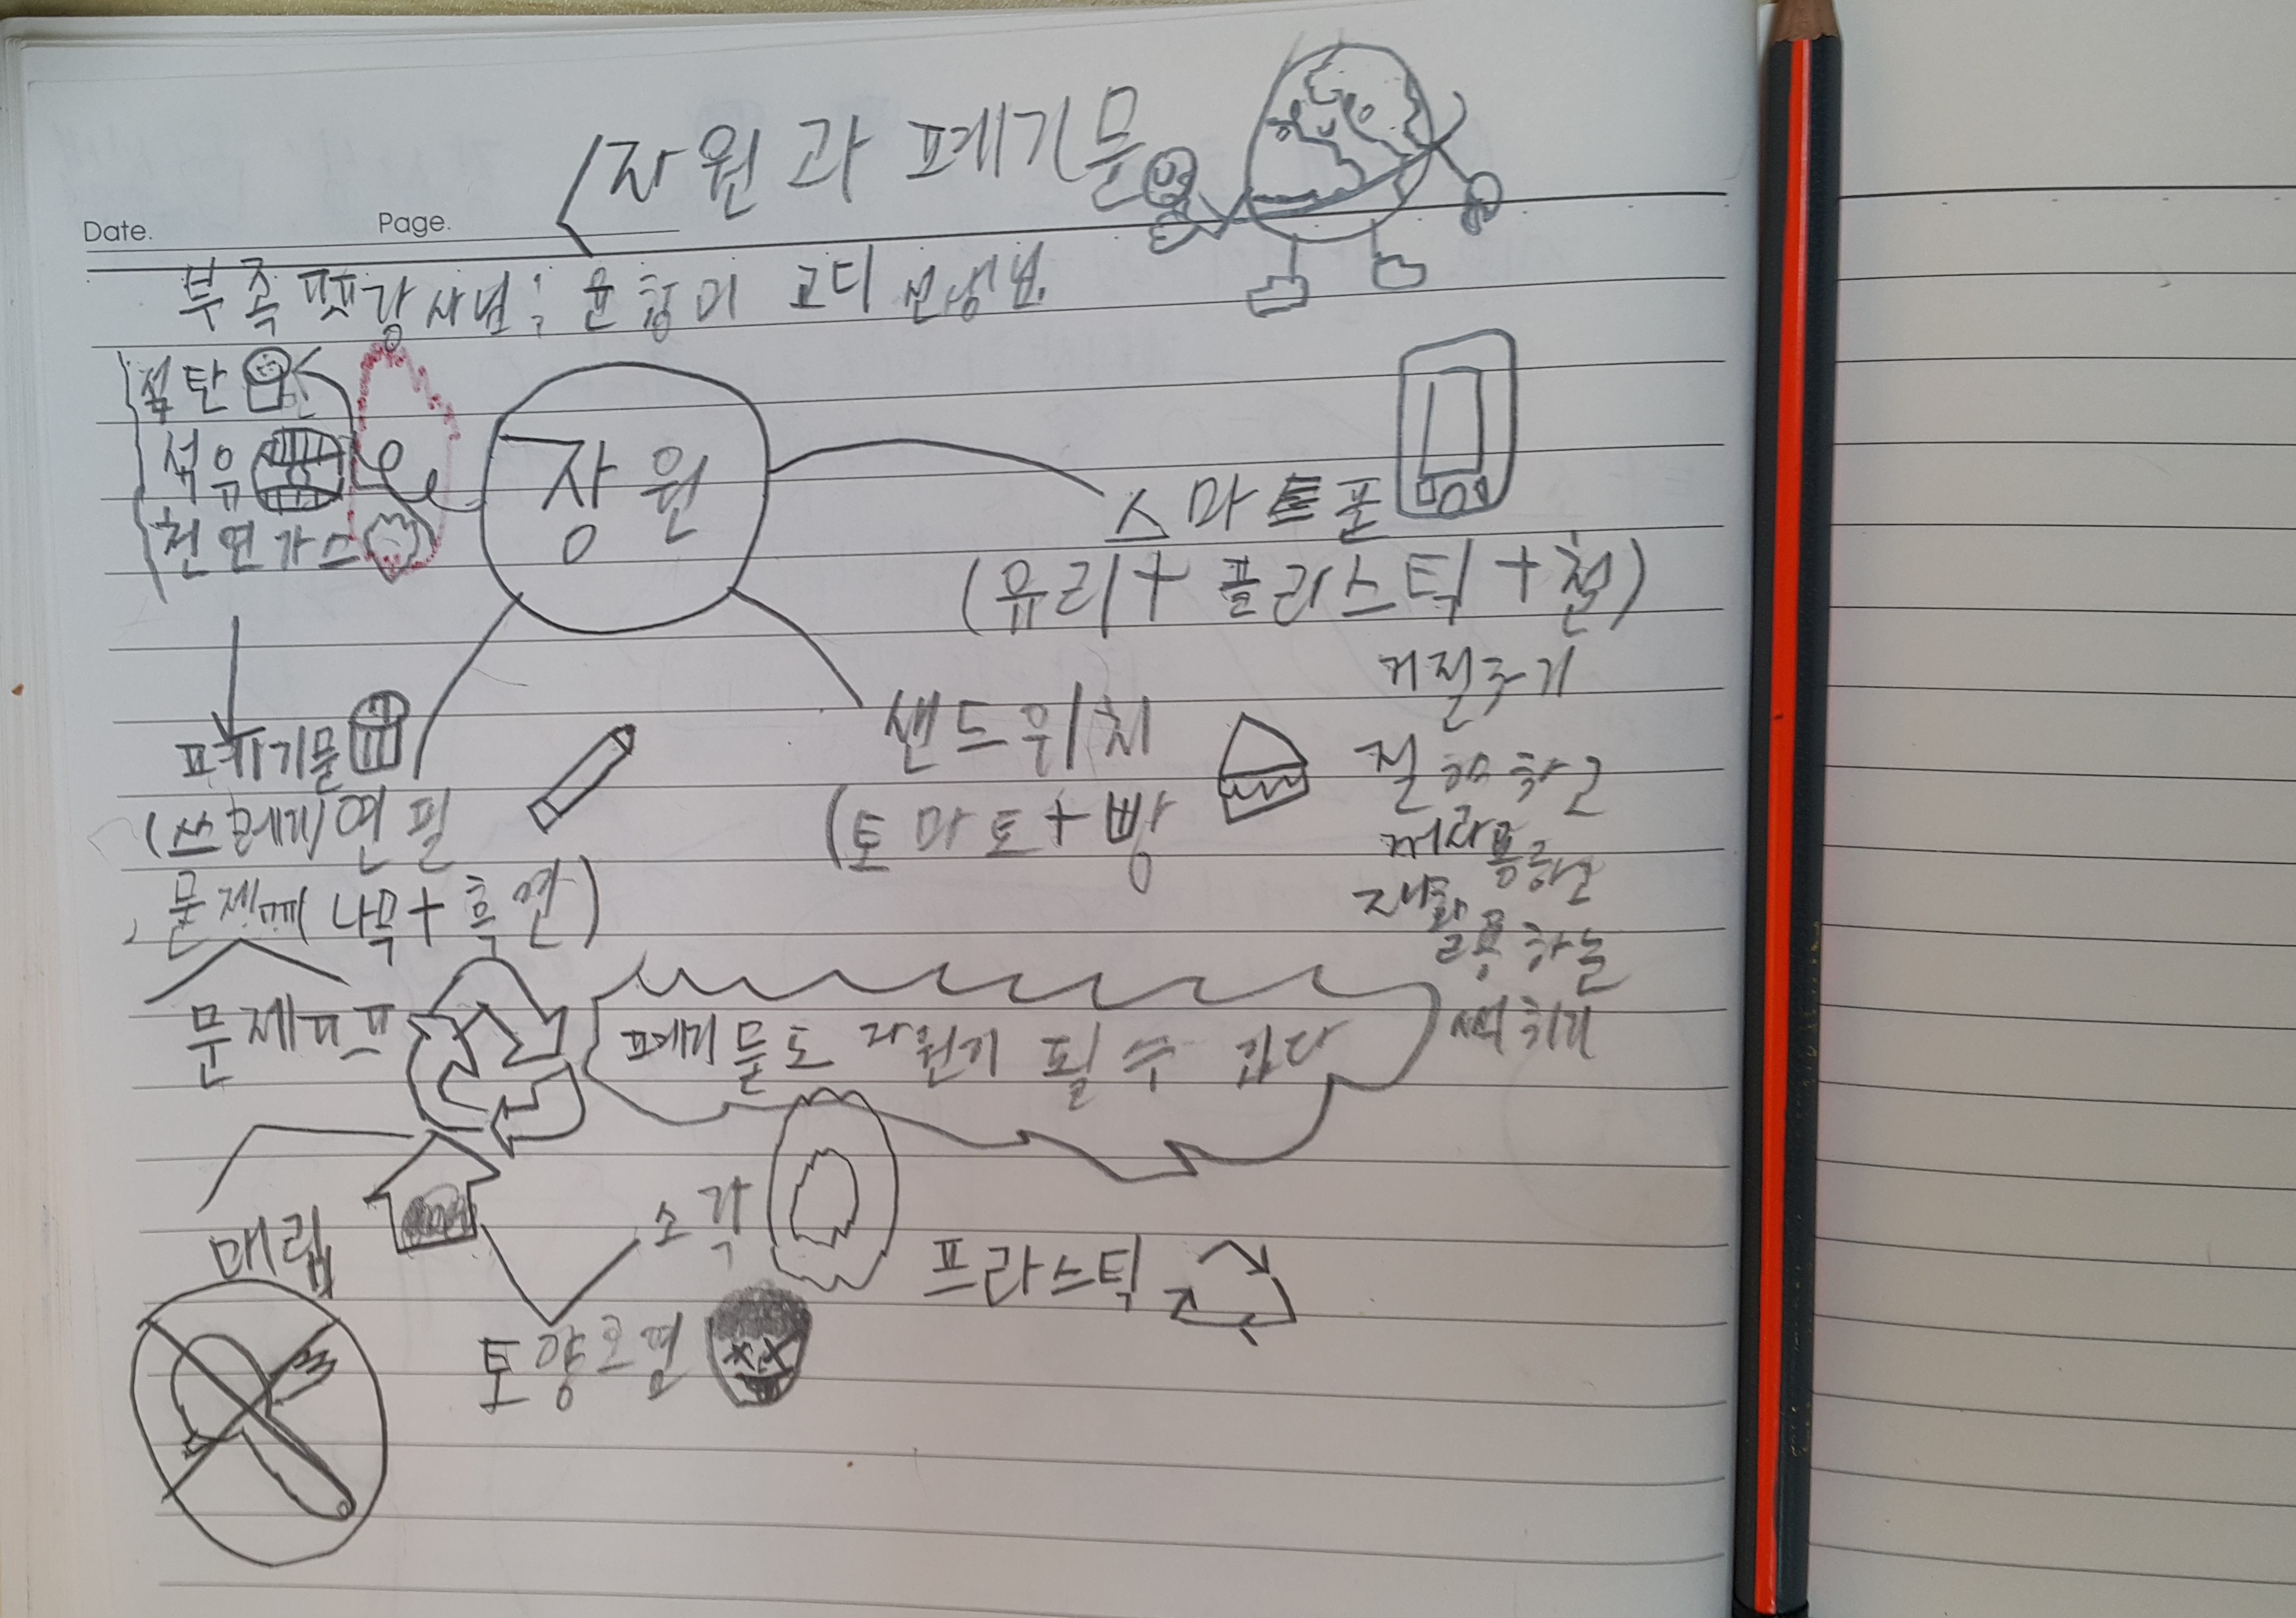 자원과 페기물
Date. Page.
부족 강사님: 윤 미 코디 선생님
석탄
석유
천연가스
장원
스마트폰
(유리+플라스틱+철)
거절구기
페기물
샌드위치
절약하고
(쓰레기)
연필
(토마토+빵
재사용하고
문제
(나무+흑연)
재활용하는
문제
페기물도 자원기 필수 있다
썩히기
매립
소각
프라스틱
토양오염